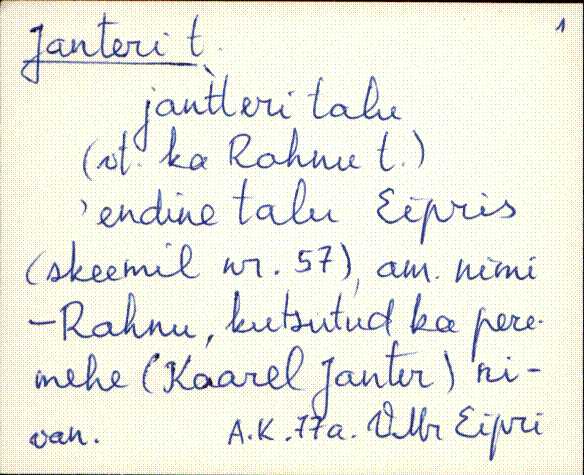 1
Janteri t.
jant̀teri talu
(vt. ka Rahnu t.)
'endine talu Eipris
(skeemil nr. 57), am. nimi
–Rahnu, kutsutud ka pere-
mehe (Kaarel Janter) ni-
van. A.K. 77a. VMr Eipri